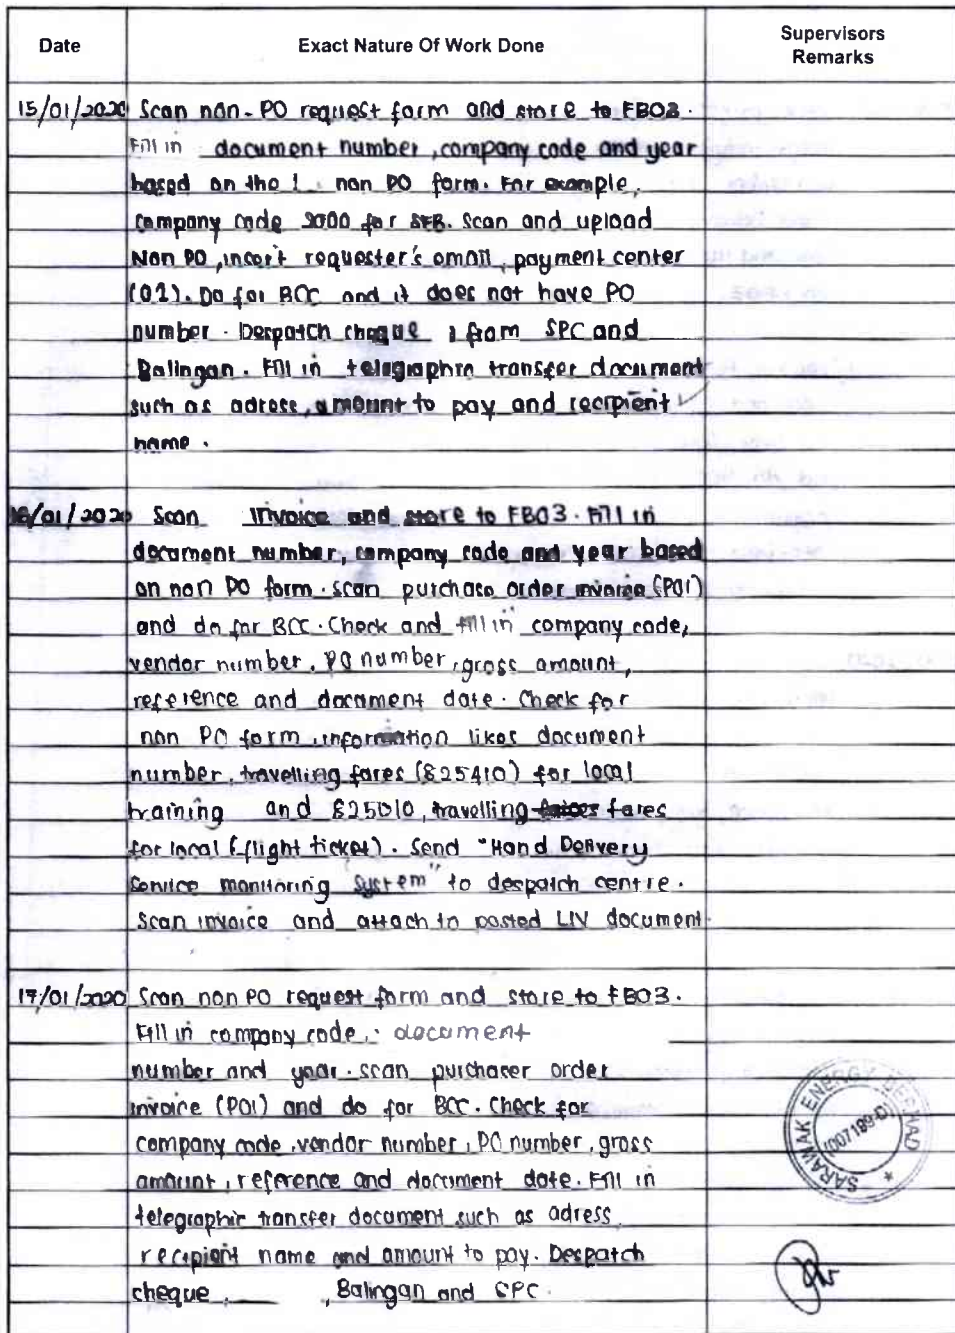 Date Exact Nature Of Work Done Supervisors Remarks
15/01/2020 Scan non-PO request form and store to FB03.
Fill in document number, company code and year
based on the non PO form. For example,
company code 2000 for SEB. Scan and upload
Non PO, insert requester's email, payment center
(01). Do for BCC and it does not have PO
number. Despatch cheque from SPC and
Balingan. Fill in telegraphic transfer document
such as adress, amount to pay and recipient
name.
16/01/2020 Scan Invoice and store to FB03. Fill in
document number, company code and year based
on non PO form. scan purchase order invoice (POI)
and do for BCC. Check and fill in company code,
vendor number, PO number, gross amount,
reference and document date. Check for
non PO form, information likes document
number, travelling fares (825410) for local
training and 825010, travelling fares
for local (flight ticket). Send "Hand Delivery
Service monitoring system" to despatch centre.
Scan invoice and attach to posted LIV document.
17/01/2020 Scan non PO request form and store to FB03.
Fill in company code, document
number and year. scan purchaser order
invoice (POI) and do for BCC. Check for
company code, vendor number, PO number, gross
amount, reference and document date. Fill in
telegraphic transfer document such as adress,
recipient name and amount to pay. Despatch
cheque, Balingan and SPC.
SARAWAK ENERGY BERHAD
(007199-D)